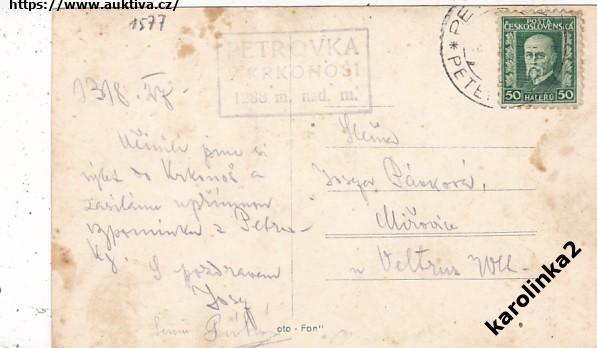 https://www.auktiva.cz/
1577
PETROVKA
V KRKONOŠÍ
1288 m. nad. m.
POŠTA
ČESKOSLOVENSKÁ
50 HALÉŘŮ 50
13/8. 27.
Učinili jsme si
výlet do Krkonoš a
zasíláme upřímnou
vzpomínku z Petrov-
ky. S pozdravem
Slečna
Párková,
Miřovice
u Veltrus
oto - Fon"
karolinka2